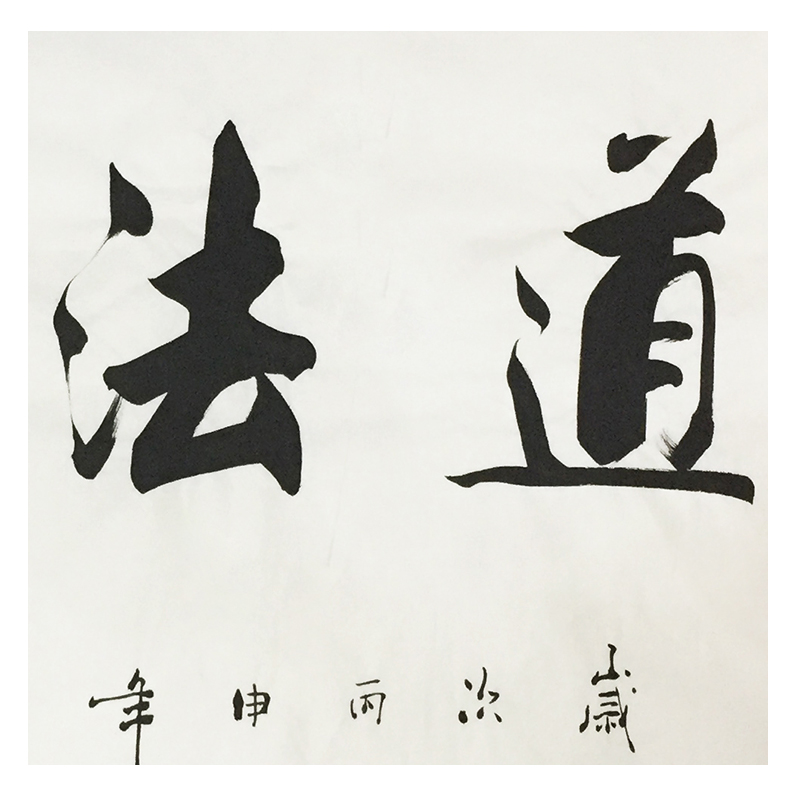 道法
歲次丙申年